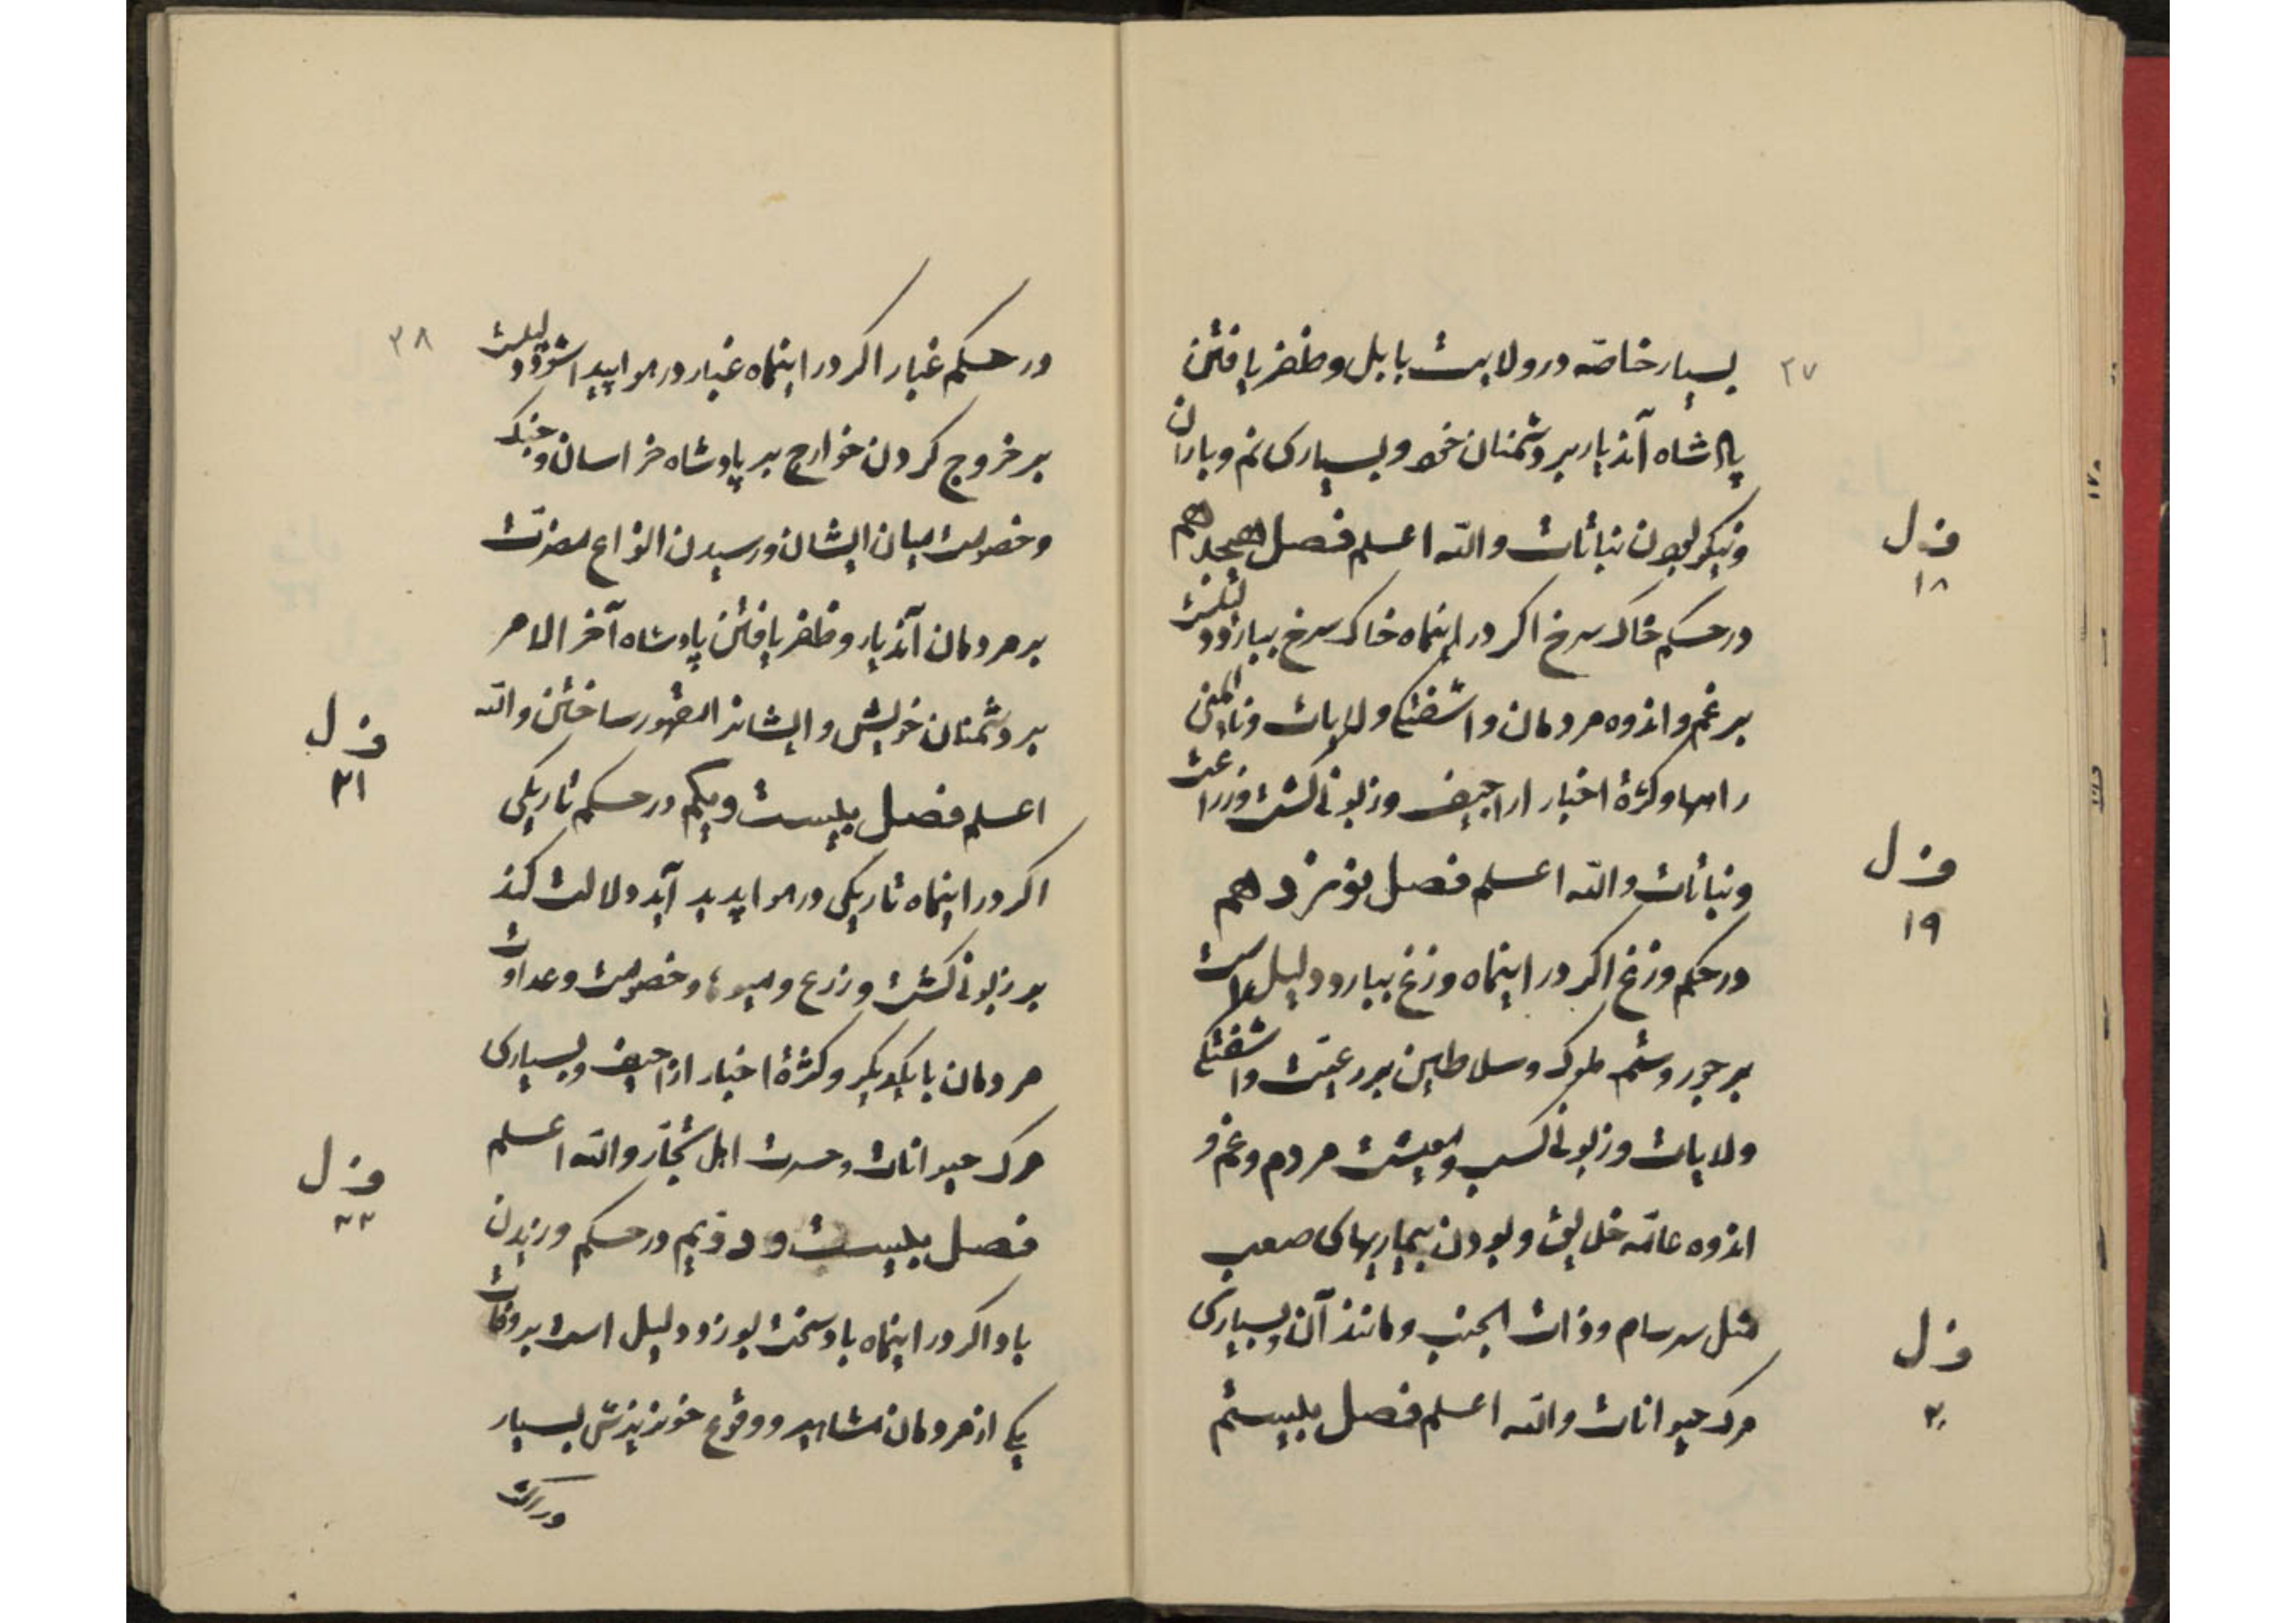 ۳۷
بسیار خاصه در ولایت بابل و ظفر یافتن
پادشاه آندیار بر دشمنان خود و بسیاری نم و باران
و نیکو بودن نباتات والله اعلم فصل هیجدهم
در حکم خاک سرخ اکر در اینماه خاک سرخ ببارد دلیلست
بر غم و اندوه مردمان و اشفتکی ولایات و ناایمنی
راهها و کثرة اخبار اراجیف و زبونی کشت و زراعت
و نباتات والله اعلم فصل نوزدهم
در حکم وزغ اکر در اینماه وزغ ببارد دلیل است
بر جور و ستم ملوک و سلاطین بر رعیت و اشفتکی
ولایات و زبونی کسب و معیشت مردم و غم و
اندوه عامه خلایق و بودن بیماریهای صعب
مثل سرسام و ذات الجنب و مانند آن و بسیاری
مرک حیوانات والله اعلم فصل بیستم
فصل
۱۸
فصل
۱۹
فصل
۲۰
۳۸
در حکم غبار اکر در اینماه غبار در هوا پیدا شود دلیلست
بر خروج کردن خوارج بر پادشاه خراسان و جنک
و خصومت میان ایشان و رسیدن انواع مضرت
بر مردمان آندیار و ظفر یافتن پادشاه آخر الامر
بر دشمنان خویش و ایشانرا مقهور ساختن والله
اعلم فصل بیست و یکم در حکم تاریکی
اکر در اینماه تاریکی در هوا پدید آید دلالت کند
بر زبونی کشت و زرع و میوها و خصومت و عداوت
مردمان با یکدیکر و کثرة اخبار اراجیف و بسیاری
مرک حیوانات و حسرت اهل تجار والله اعلم
فصل بیست و دویم در حکم وزیدن
باد اکر در اینماه باد سخت بوزد دلیل است بر وفات
یکی از مردمان مشاهیر و وقوع خونریزش بسیار
فصل
۲۱
فصل
۲۲